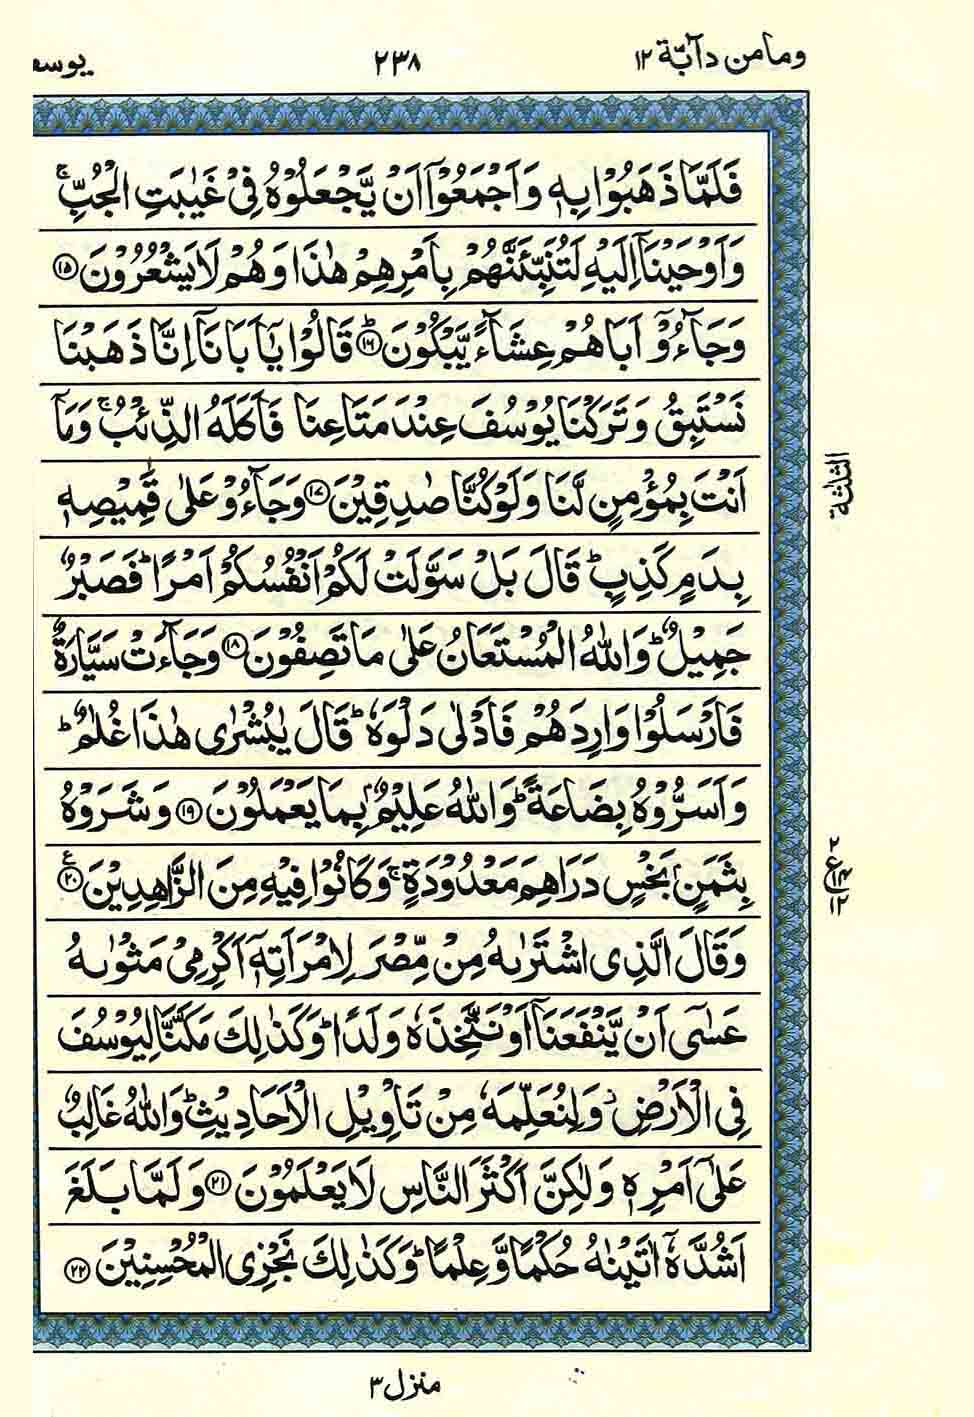 وما من دآبّة ١٢
٢٣٨
يوسف
فَلَمَّا ذَهَبُوْا بِهٖ وَاَجْمَعُوْۤا اَنْ يَّجْعَلُوْهُ فِیْ غَيٰبَتِ الْجُبِّ ۚ
وَاَوْحَيْنَاۤ اِلَيْهِ لَتُنَبِّئَنَّهُمْ بِاَمْرِهِمْ هٰذَا وَهُمْ لَا يَشْعُرُوْنَ ۝١٥
وَجَآءُوْۤ اَبَاهُمْ عِشَآءً يَّبْكُوْنَ ۝١٦ؕ قَالُوْا يٰۤاَبَانَاۤ اِنَّا ذَهَبْنَا
نَسْتَبِقُ وَتَرَكْنَا يُوْسُفَ عِنْدَ مَتَاعِنَا فَاَكَلَهُ الذِّئْبُ ۚ وَمَاۤ
اَنْتَ بِمُؤْمِنٍ لَّنَا وَلَوْ كُنَّا صٰدِقِيْنَ ۝١٧ وَجَآءُوْ عَلٰی قَمِيْصِهٖ
بِدَمٍ كَذِبٍ ؕ قَالَ بَلْ سَوَّلَتْ لَكُمْ اَنْفُسُكُمْ اَمْرًا ؕ فَصَبْرٌ
جَمِيْلٌ ؕ وَاللّٰهُ الْمُسْتَعَانُ عَلٰی مَا تَصِفُوْنَ ۝١٨ وَجَآءَتْ سَيَّارَةٌ
فَاَرْسَلُوْا وَارِدَهُمْ فَاَدْلٰی دَلْوَهٗ ؕ قَالَ يٰبُشْرٰی هٰذَا غُلٰمٌ ؕ
وَاَسَرُّوْهُ بِضَاعَةً ؕ وَاللّٰهُ عَلِيْمٌۢ بِمَا يَعْمَلُوْنَ ۝١٩ وَشَرَوْهُ
بِثَمَنٍۢ بَخْسٍ دَرَاهِمَ مَعْدُوْدَةٍ ۚ وَكَانُوْا فِيْهِ مِنَ الزَّاهِدِيْنَ ۝٢٠ع
وَقَالَ الَّذِی اشْتَرٰىهُ مِنْ مِّصْرَ لِامْرَاَتِهٖۤ اَكْرِمِیْ مَثْوٰىهُ
عَسٰۤی اَنْ يَّنْفَعَنَاۤ اَوْ نَتَّخِذَهٗ وَلَدًا ؕ وَكَذٰلِكَ مَكَّنَّا لِيُوْسُفَ
فِی الْاَرْضِ ۫ وَلِنُعَلِّمَهٗ مِنْ تَاْوِيْلِ الْاَحَادِيْثِ ؕ وَاللّٰهُ غَالِبٌ
عَلٰۤی اَمْرِهٖ وَلٰكِنَّ اَكْثَرَ النَّاسِ لَا يَعْلَمُوْنَ ۝٢١ وَلَمَّا بَلَغَ
اَشُدَّهٗۤ اٰتَيْنٰهُ حُكْمًا وَّعِلْمًا ؕ وَكَذٰلِكَ نَجْزِی الْمُحْسِنِيْنَ ۝٢٢
الثلثة
٢
ع١٤
١٢
منزل ٣